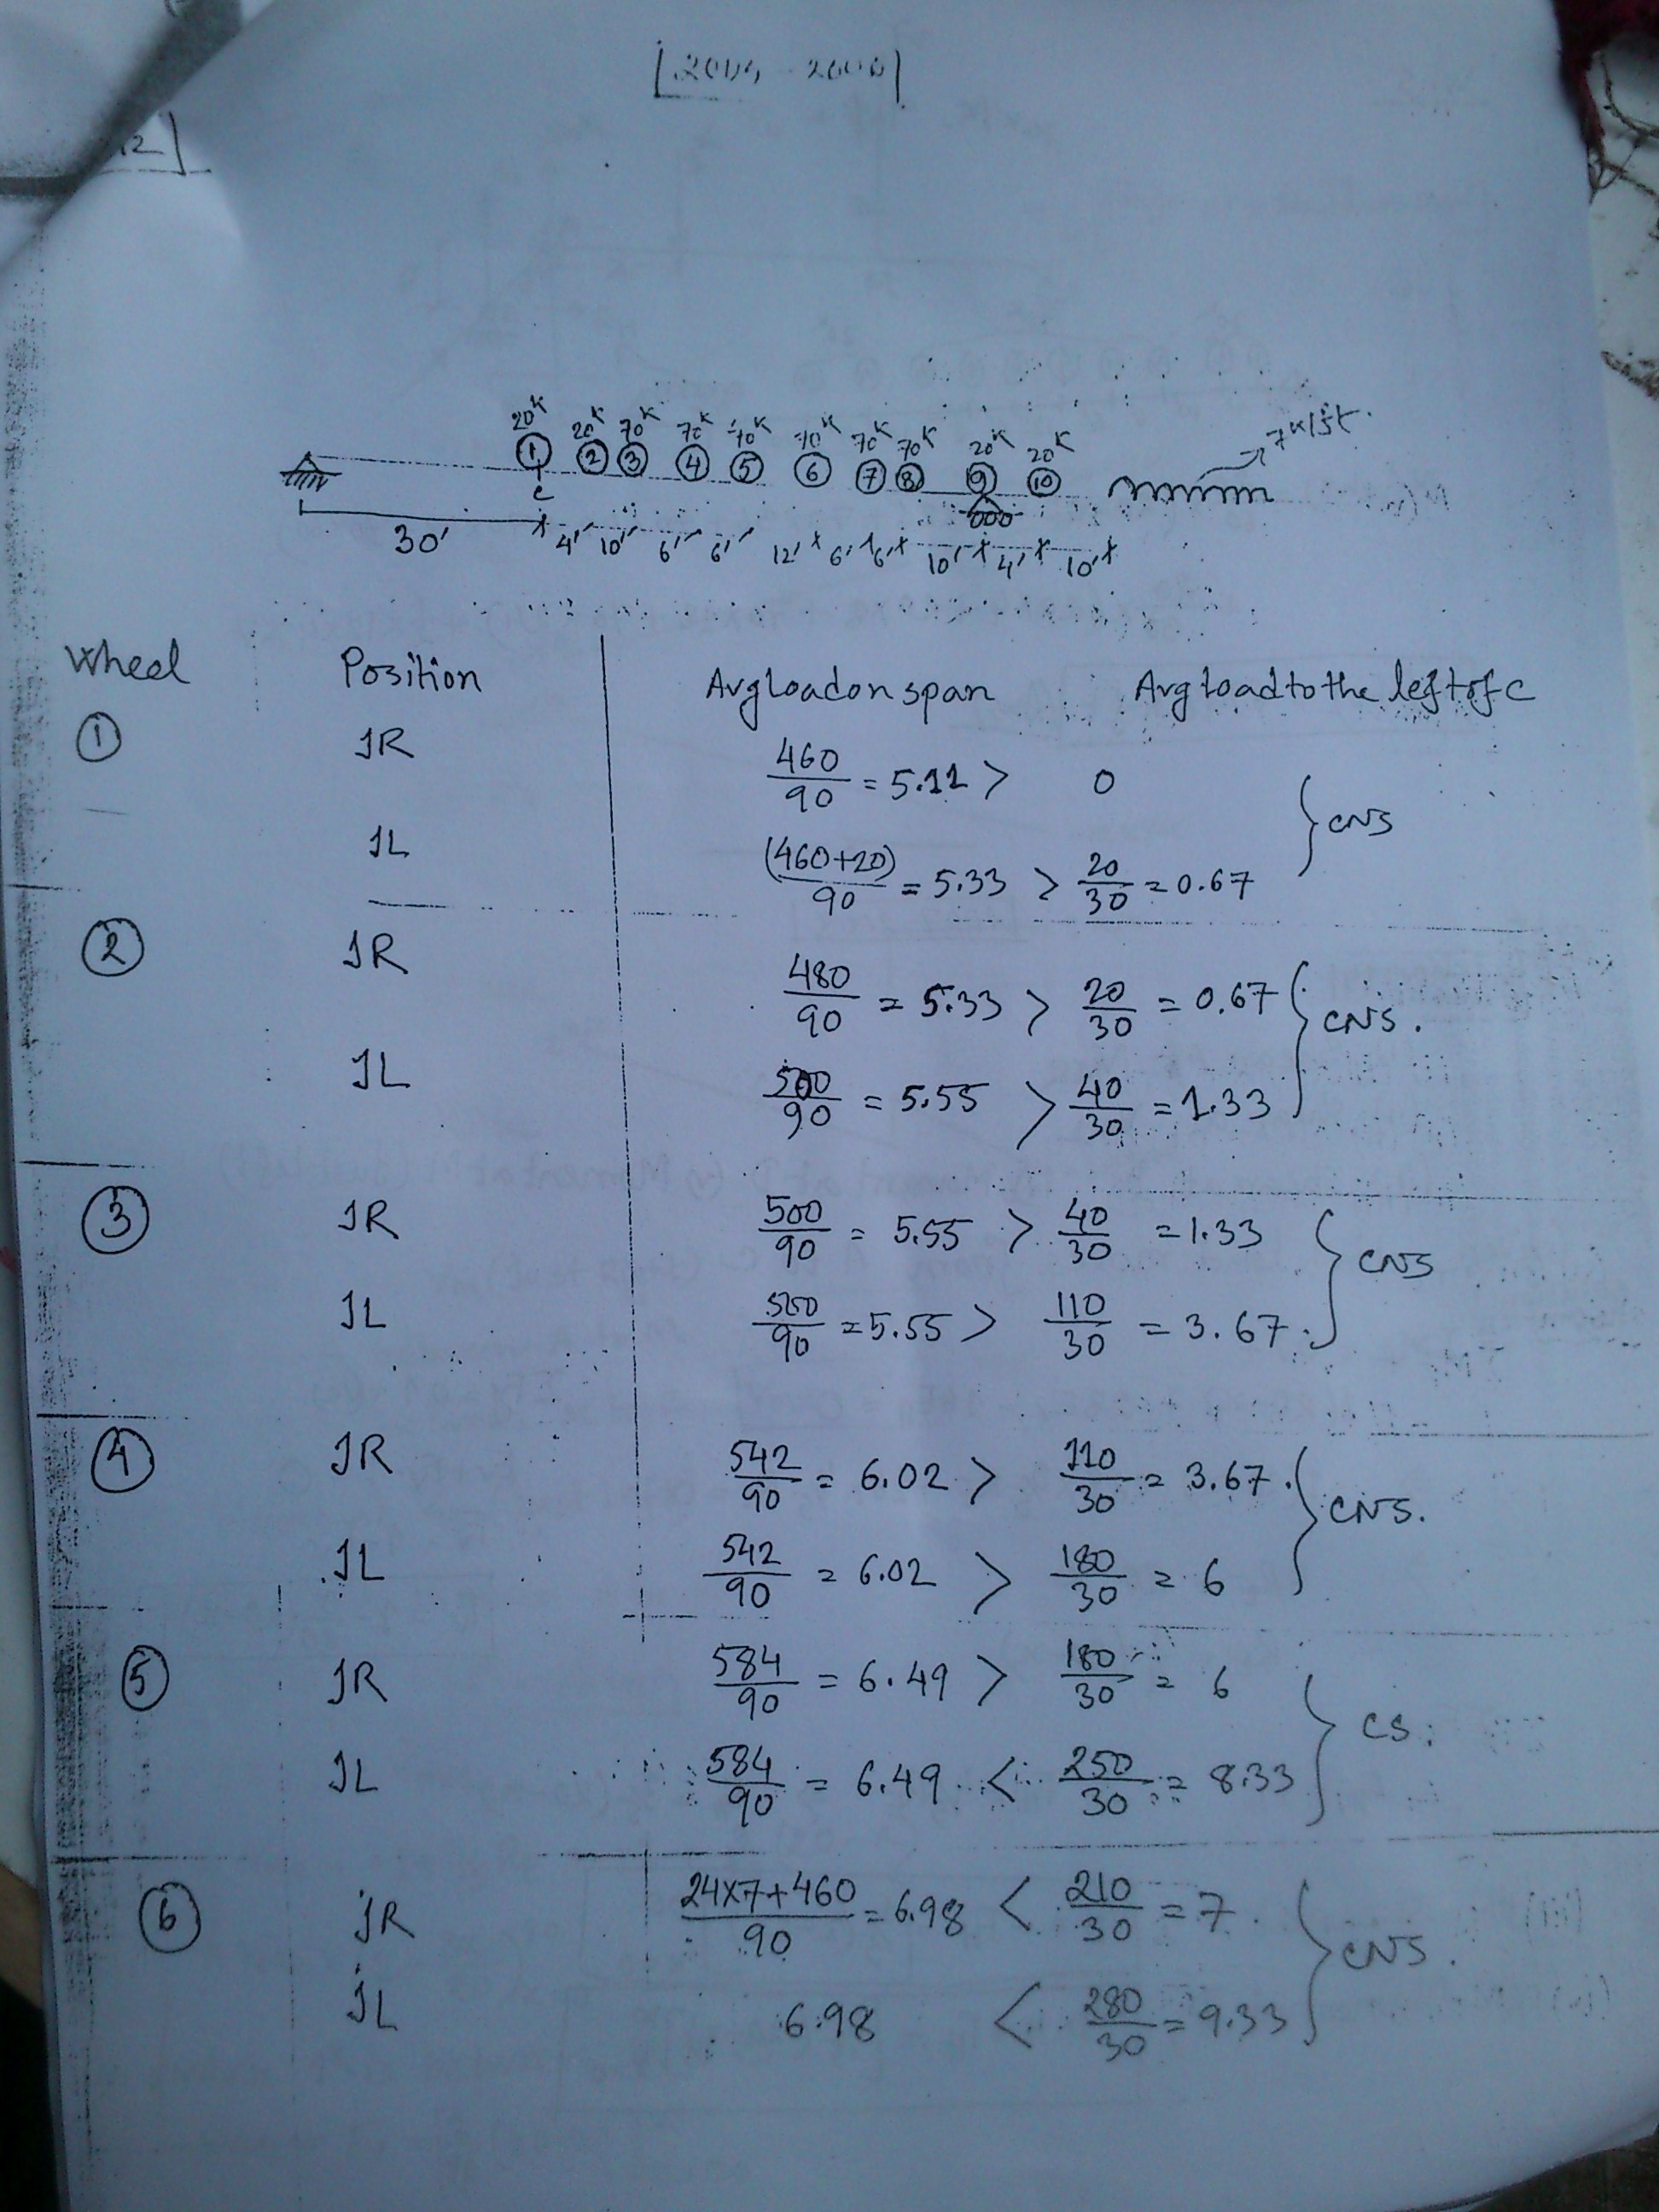 [2005 - 2006]
12]
20K 20K 70K 70K 70K 70K 70K 70K 20K 20K 7K/ft.
1 2 3 4 5 6 7 8 9 10
C
30' 4' 10' 6' 6' 12' 6' 6' 10' 4' 10'
Wheel Position Avg load on span Avg load to the left of C
① JR 460/90 = 5.11 > 0
JL (460+20)/90 = 5.33 > 20/30 = 0.67 } CNS
② JR 480/90 = 5.33 > 20/30 = 0.67
JL 500/90 = 5.55 > 40/30 = 1.33 } CNS.
③ JR 500/90 = 5.55 > 40/30 = 1.33
JL 500/90 = 5.55 > 110/30 = 3.67. } CNS
④ JR 542/90 = 6.02 > 110/30 = 3.67.
JL 542/90 = 6.02 > 180/30 = 6 } CNS.
⑤ JR 584/90 = 6.49 > 180/30 = 6
JL 584/90 = 6.49 < 250/30 = 8.33 } CS.
⑥ JR 24x7+460/90 = 6.98 < 210/30 = 7.
JL 6.98 < 280/30 = 9.33 } CNS.